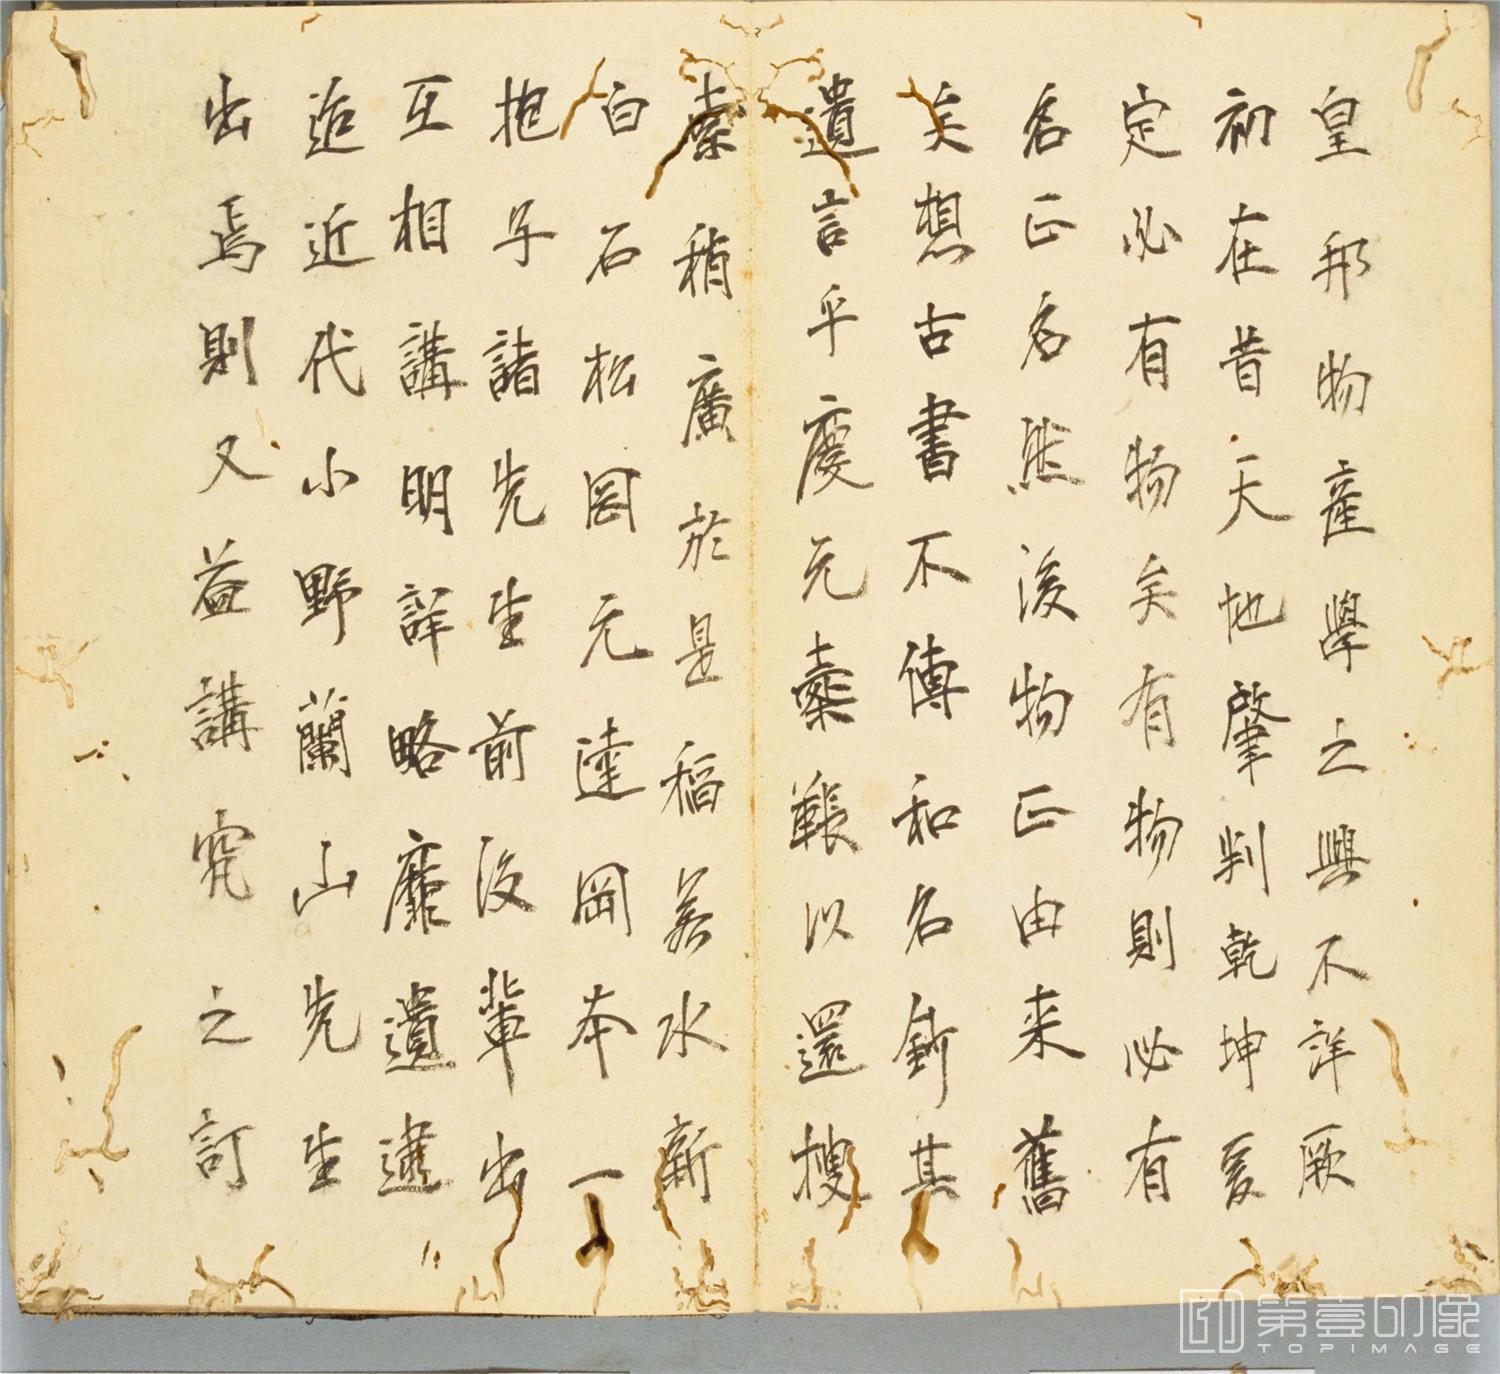 皇邦物産學之興不詳厥
初在昔天地肇判乾坤爰
定必有物矣有物則必有
名正名然後物正由来舊
矣想古書不傳和名鈔其
遺言乎慶元櫜韔以還搜
索稍廣於是稲若水新
白石松岡元達岡本一
抱子諸先生前後輩出
互相講明詳略靡遺逮
迨近代小野蘭山先生
出焉則又益講究之訂
第壹印像
TOPIMAGE